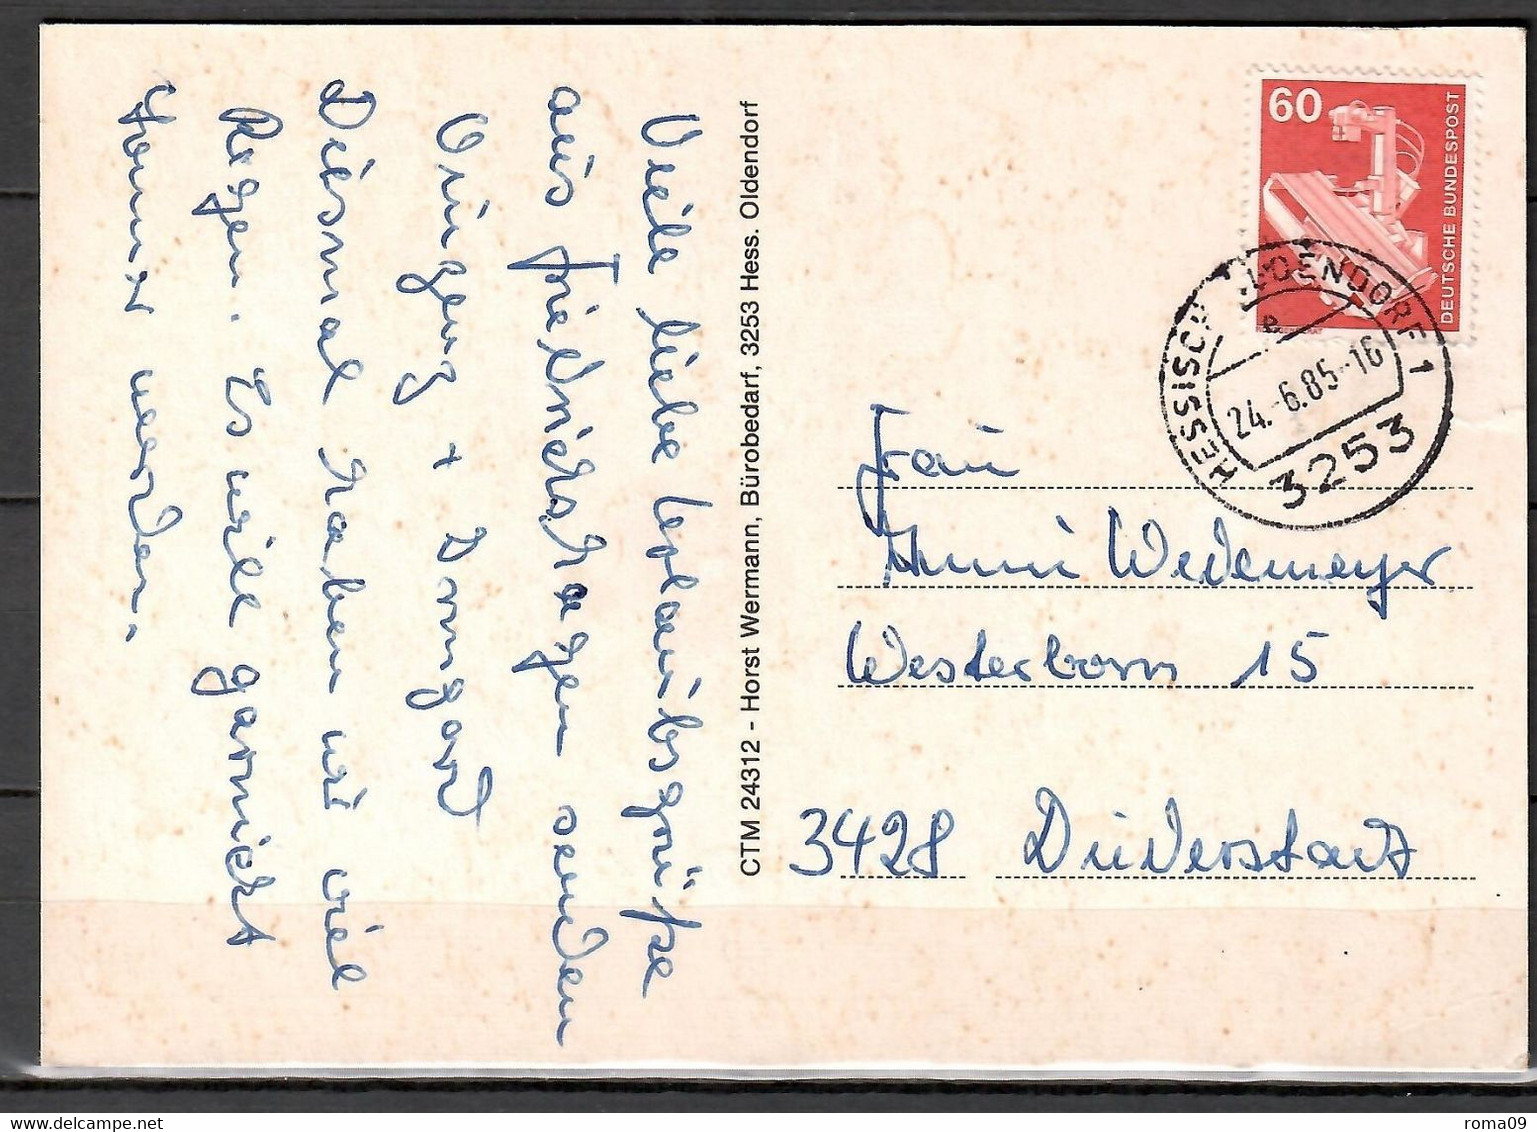 Viele liebe Urlaubsgrüße
aus Friedrichshagen senden
+ Irmgard
Diesmal haben wir viel
Regen. Es will garnicht
Sommer werden.
CTM 24312 - Horst Wermann, Bürobedarf, 3253 Hess. Oldendorf
60
DEUTSCHE BUNDESPOST
HESSISCH OLDENDORF 1
e
24.-6.85-16
3253
Frau
Anni Wedemeyer
Westerborn 15
3428 Duderstadt
roma09